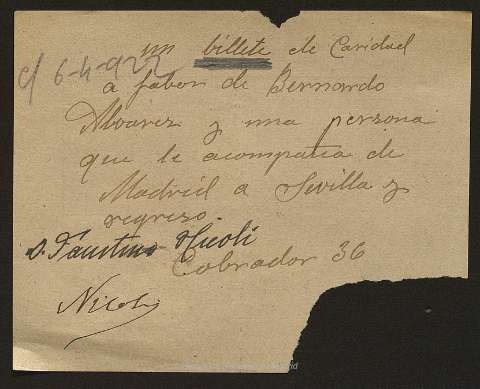 un billete de Caridad
c/ 6-4-922
a fabor de Bernardo
Alvarez y una persona
que le acompaña de
Madrid a Sevilla y
regreso.
D. Faustino Nicoli
Cobrador 36
Nicoli